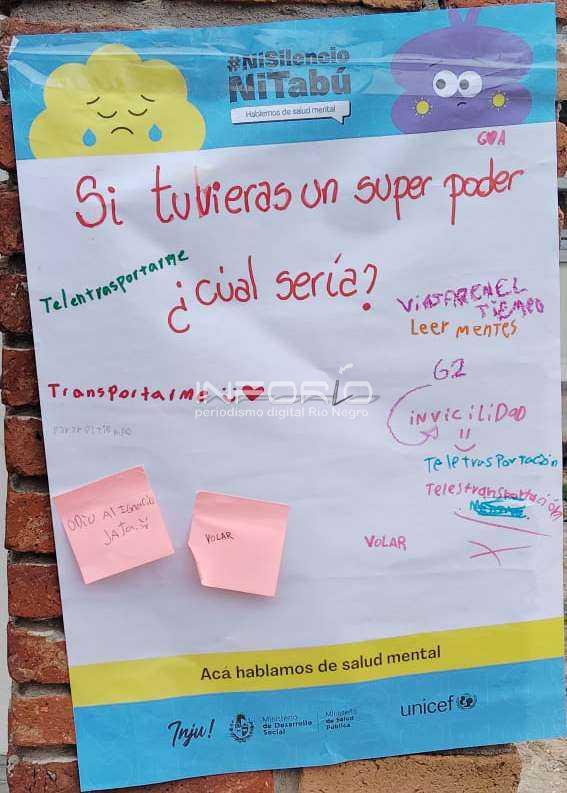 #NiSilencio
NiTabú
Hablemos de salud mental
G♥A
Si tuvieras un super poder
¿cúal sería?
Telentrasportarme
ViajAR EN EL
TIEMPO
Leer mentes
G2
invicilidad
Teletrasportación
Transportarme ü♥
INFORÍO
periodismo digital Río Negro
parar el tiempo
Telestransportación
ODIO Al Ignacio
JATA
VOLAR
VOLAR
Acá hablamos de salud mental
Inju!
Ministerio
de Desarrollo
Social
Ministerio
de Salud
Pública
unicef